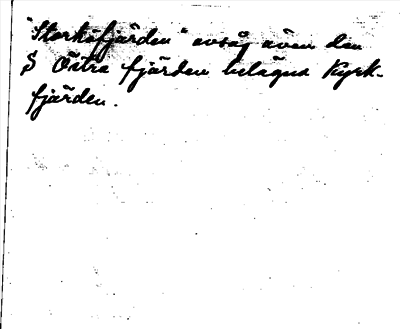 "Storkåfjärden" avsåg även den
S Östra fjärden belägna Kyrk-
fjärden.